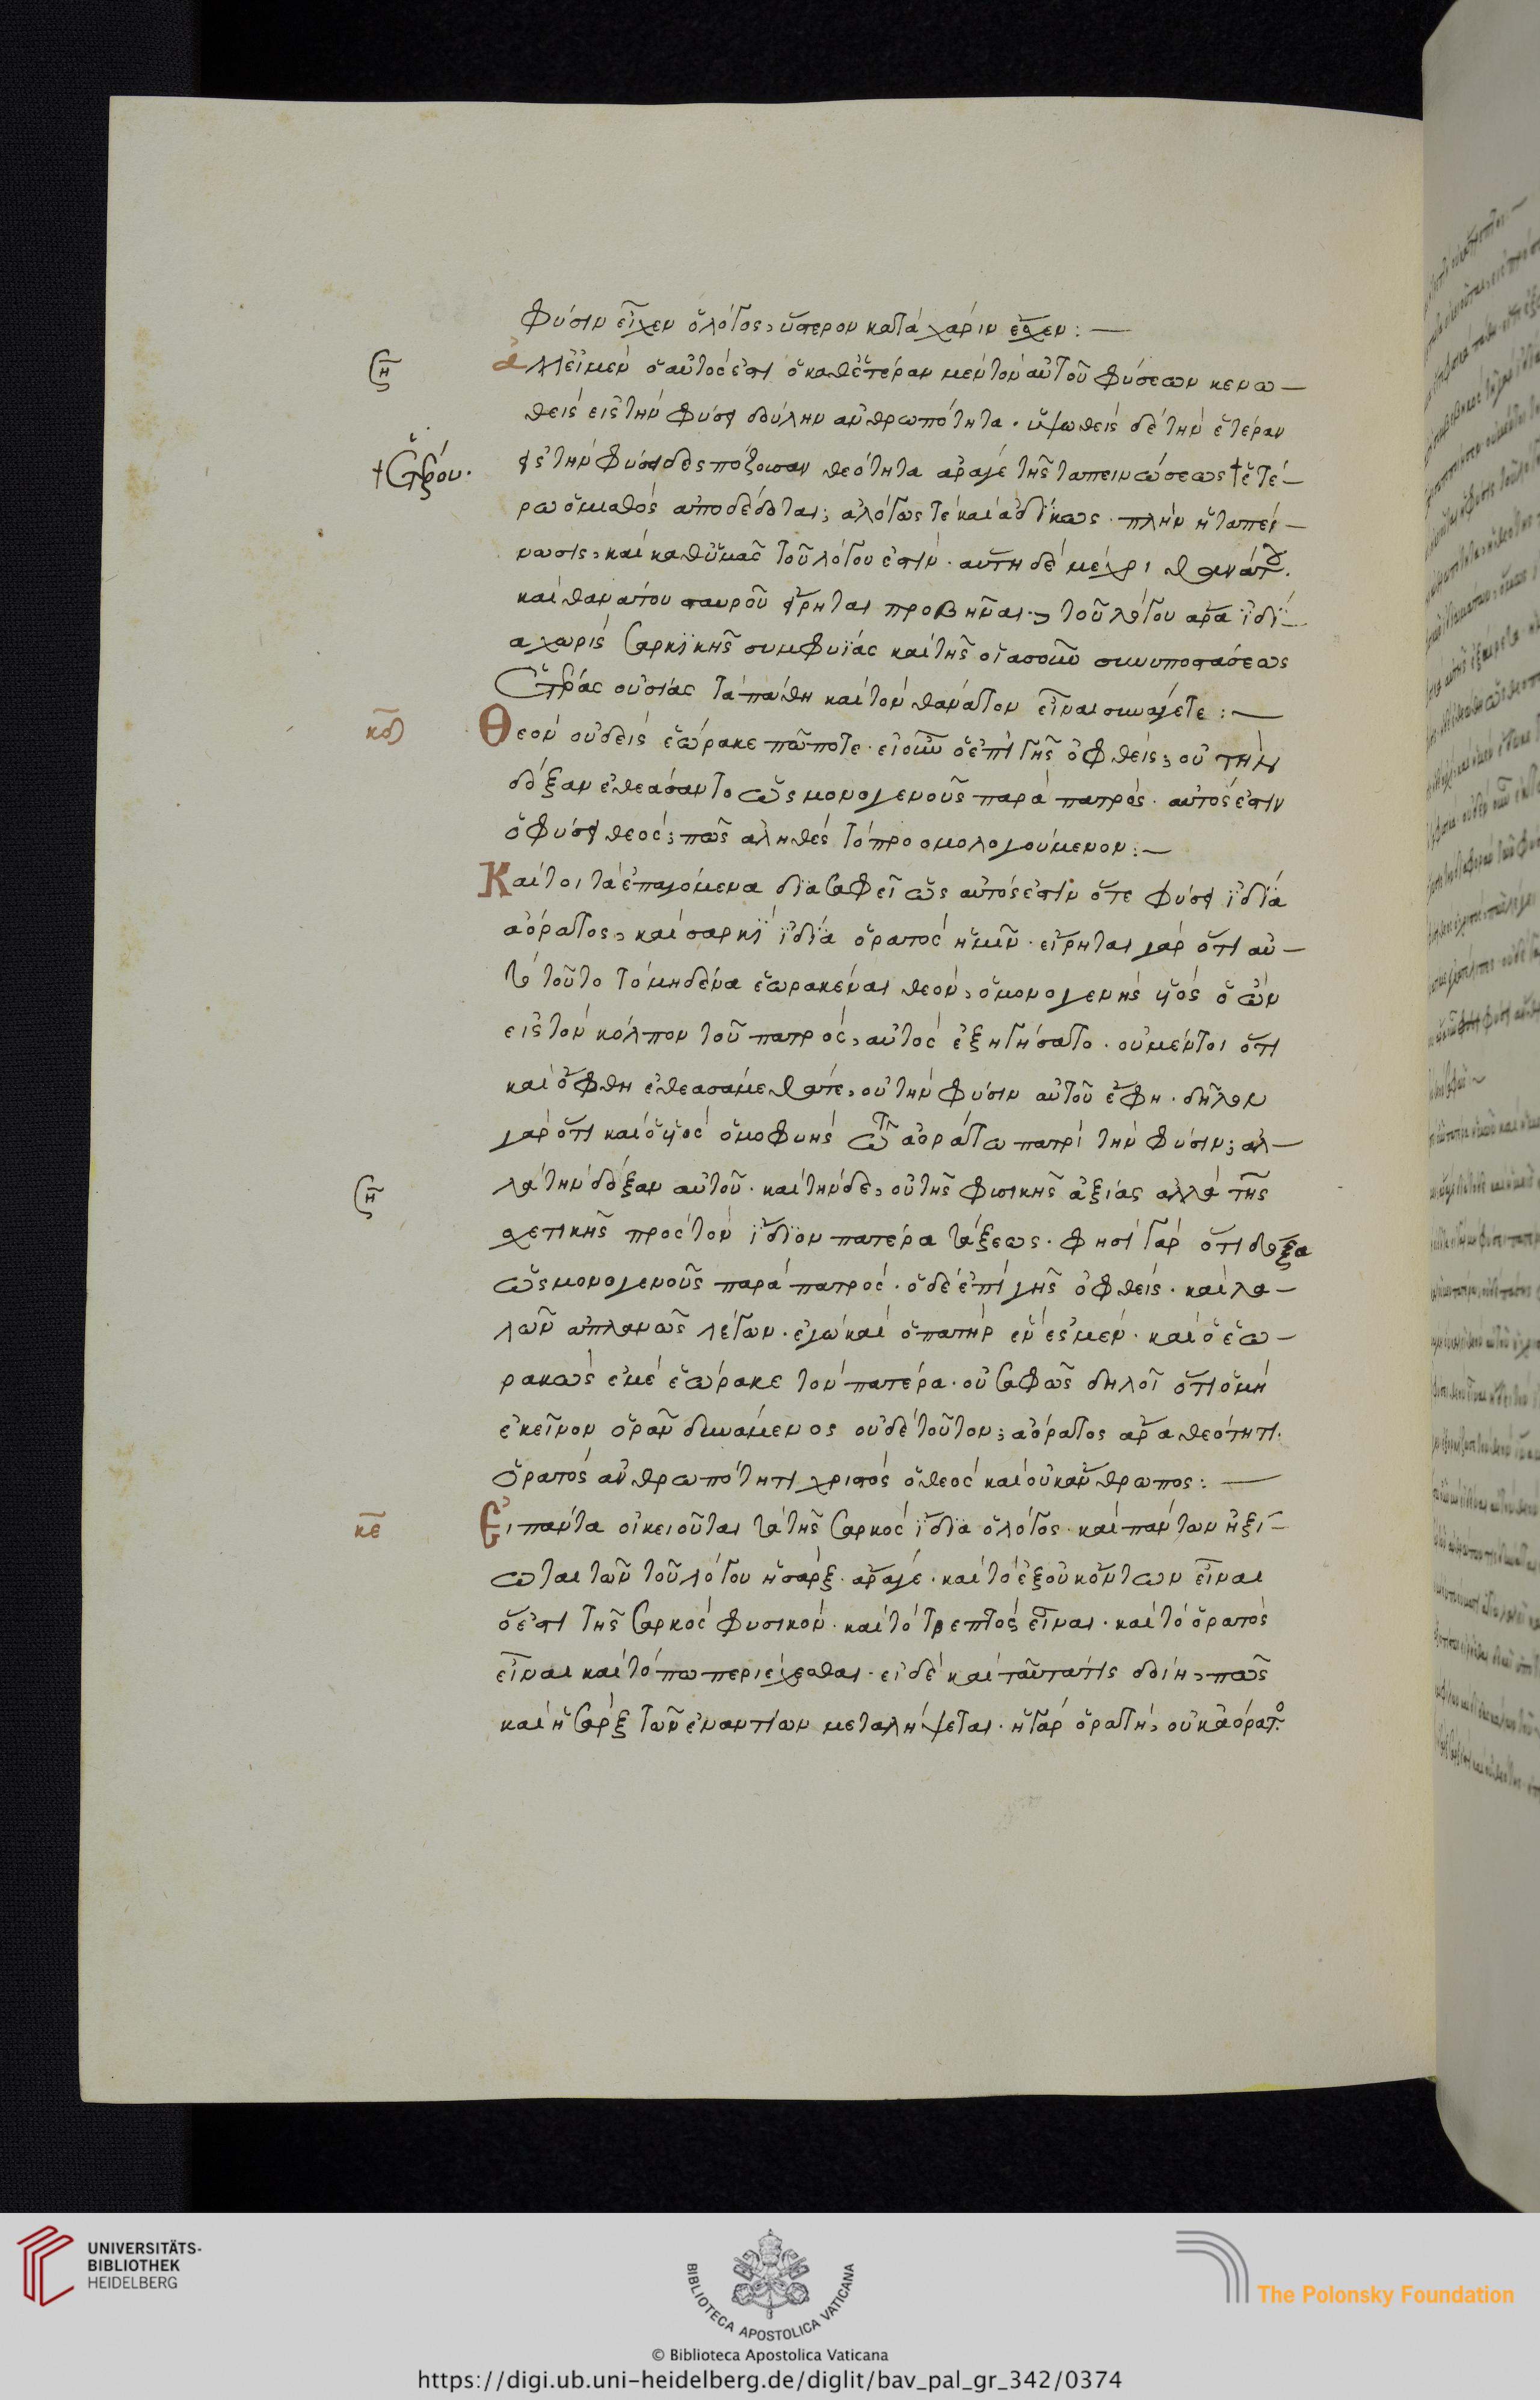 φύσιν εἶχεν ὁ λόγος, ὕστερον κατὰ χάριν ἔσχεν :—
ἀλλ εἰ μὲν ὁ αὐτός ἐστι ὁ καθ ἑτέραν μὲν τῶν αὐτοῦ φύσεων κενω—
θεὶς εἰς τὴν φύσει δούλην ανθρωπότητα · ὑψωθεὶς δὲ τὴν ἑτέραν
εἰς τὴν φύσει δεσπόζουσαν θεότητα ἆρά γε τῆς ταπεινώσεως † ἑτέ—
ρω ὁ μισθὸς αποδέδοται; αλόγως τὲ καὶ αδίκως · πλὴν ἡ ταπεί—
νωσις, καὶ καθ ὑμᾶς τοῦ λόγου ἐστὶν · αὕτη δὲ μέχρι θανάτου ·
καὶ θανάτου σταυροῦ εἴρηται προβῆναι · τοῦ λόγου ἄρα ϊδί—
α χωρὶς σαρκϊκῆς συμφυΐας καὶ τῆς οιασοῦν συνυποστάσεως
ἑτέρας ουσίας τὰ πάθη καὶ τὸν θάνατον εἶναι συνάγετε :—
κδ
Θεὸν οὐδεὶς ἑώρακε πώποτε · εἰ οὖν ὁ ἐπὶ γῆς ὀφθείς, οὗ τὴν
δόξαν ἐθεάσαντο ὡς μονογενοῦς παρὰ πατρός · αὐτός ἐστιν
ὁ φύσει θεός; πῶς αληθὲς τὸ προομολογούμενον :—
Καίτοι τὰ ἐπαγόμενα δϊασαφεῖ ὡς αὐτός ἐστιν ὅτε φύσει ϊδία
αόρατος, καὶ σαρκὶ ϊδία ὁρατὸς ἡμῖν · εἴρηται γὰρ ὅτι αὐ—
τὸ τοῦτο τὸ μηδένα ἑωρακέναι θεόν, ὁ μονογενὴς υἱὸς ὁ ὢν
εἰς τὸν κόλπον τοῦ πατρὸς, αὐτὸς ἐξηγήσατο · οὐ μέντοι ὅτι
καὶ ὤφθη ἐθεασάμεθά τε, οὐ τὴν φύσιν αὐτοῦ ἔφη · δῆλον
γὰρ ὅτι καὶ ὁ υἱὸς ὁμοφυὴς ὢν τῷ αοράτω πατρὶ τὴν φύσιν; αλ—
λὰ τὴν δόξαν αὐτοῦ · καὶ τήνδε, οὐ τῆς φυσικῆς ἀξίας αλλὰ τῆς
σχετικῆς πρὸς τὸν ΐδϊον πατέρα τάξεως · φησὶ γὰρ ὅτι δόξα
ὡς μονογενοῦς παρὰ πατρός · ὁ δὲ ἐπὶ γῆς ὀφθείς · καὶ λα—
λῶν απλανῶς λέγων · ἐγὼ καὶ ὁ πατὴρ ἕν ἐσμέν · καὶ ὁ ἑω—
ρακὼς ἐμὲ ἑώρακε τὸν πατέρα · οὐ σαφῶς δηλοῖ ὅτι ὁ μὴ
ἐκεῖνον ὁρᾶν δυνάμενος οὐδὲ τοῦτον; αόρατος ἄρα θεότητι·
ὁρατὸς ἀνθρωπότητι χριστὸς ὁ θεὸς καὶ οὐκ ἄνθρωπος :—
κε
Εἰ πάντα οἰκειοῦται τὰ τῆς σαρκὸς ΐδϊα ὁ λόγος · καὶ πάντων ἠξί—
ωται τῶν τοῦ λόγου ἡ σάρξ · ἆρά γε · καὶ τὸ ἐξ οὐκ ὄντων εἶναι
ὅ ἐστι τῆς σαρκὸς φυσικόν · καὶ τὸ τρεπτὸς εἶναι · καὶ τὸ ὁρατὸς
εἶναι καὶ τόπω περιέχεσθαι · εἰ δὲ καὶ ταῦτα τὶς δοίη, πῶς
καὶ ἡ σὰρξ τῶν ἐναντίων μεταλήψεται · ἡ γὰρ ὁρατὴ, οὐκ αόρατος
UNIVERSITÄTS-
BIBLIOTHEK
HEIDELBERG
BIBLIOTECA APOSTOLICA VATICANA
The Polonsky Foundation
© Biblioteca Apostolica Vaticana
https://digi.ub.uni-heidelberg.de/diglit/bav_pal_gr_342/0374